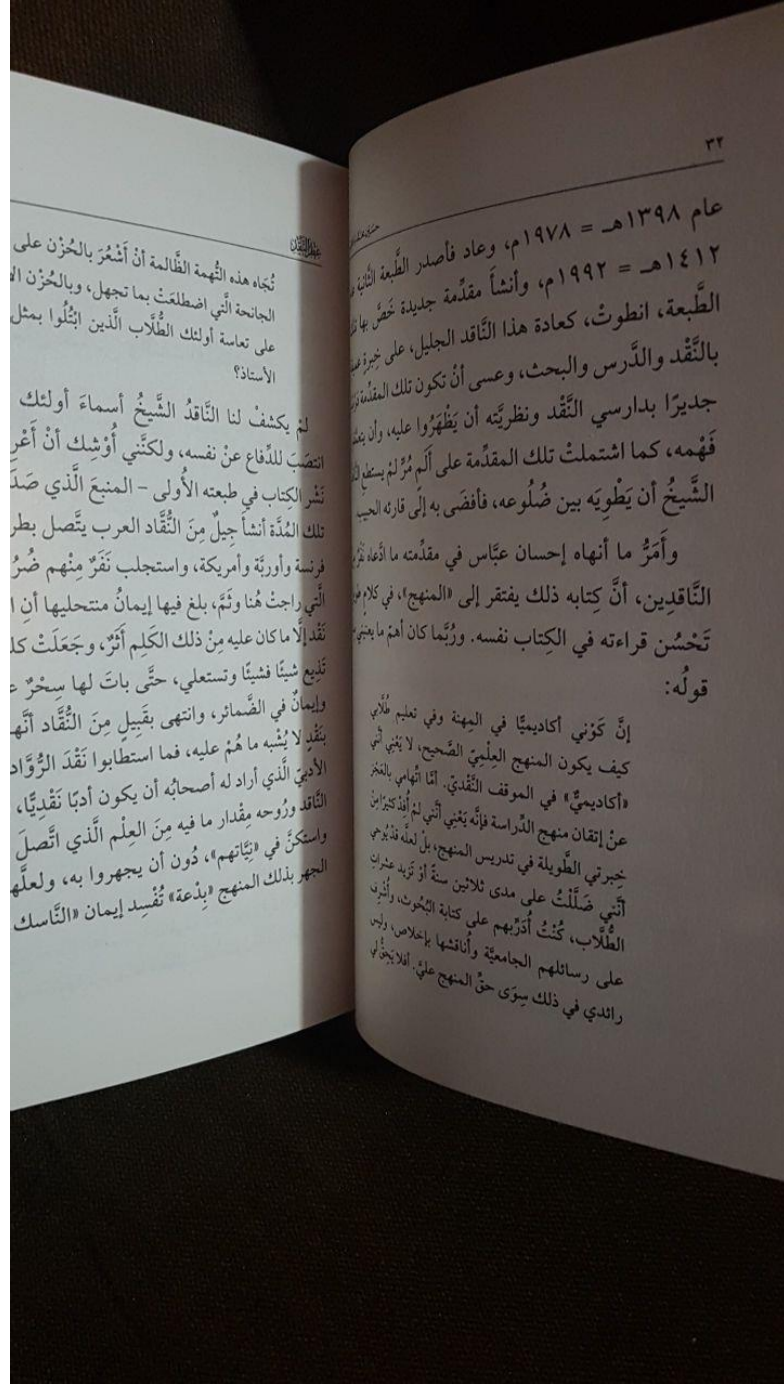 ٣٢
عام ١٣٩٨هـ = ١٩٧٨م، وعاد فأصدر الطَّبعة الثَّانية
١٤١٢هـ = ١٩٩٢م، وأنشأ مقدِّمة جديدة خَصَّ بها
الطَّبعة، انطوتْ، كعادة هذا النَّاقد الجليل، على خِبرةٍ
بالنَّقْد والدَّرس والبحث، وعسى أنْ تكون تلك المقدِّمة
جديرًا بدارسي النَّقْد ونظريَّته أن يَظْهَرُوا عليه، وأن
فَهْمه، كما اشتملتْ تلك المقدِّمة على أَلَم مُرٍّ لمْ يستطع
الشَّيخُ أن يَطْوِيَه بين ضُلُوعه، فأفضَى به إلى قارئه الحبيب
وأَمَرُّ ما أنهاه إحسان عبَّاس في مقدِّمته ما ادَّعاه نَفَرٌ
النَّاقدِين، أنَّ كِتابه ذلك يفتقر إلى «المنهج»، في كلامٍ
تَحْسُن قراءته في الكِتاب نفسه. ورُبَّما كان أهمّ ما
قولُه:
إنَّ كَوْني أكاديميًّا في المِهنة وفي تعليم طُلَّابي
كيف يكون المنهج العِلْمِيّ الصَّحيح، لا يَعْني أنَّني
«أكاديميٌّ» في الموقف النَّقْديّ. أمَّا اتِّهامي بالعَجْز
عنْ إتقان منهج الدِّراسة فإنَّه يَعْنِي أنَّني لمْ أُفِدْ كثيرًا مِنْ
خِبرتي الطَّويلة في تدريس المنهج، بلْ لعلَّه قدْ يُوحي
أنَّني ضَلَّلْتُ على مدى ثلاثين سنةً أوْ تَزيد عشراتِ
الطُّلَّاب، كُنْتُ أُدَرِّبهم على كتابة البُحُوث، وأُشْرِف
على رسائلهم الجامعيَّة وأُناقشها بإخلاص، وليس
رائدي في ذلك سِوَى حقِّ المنهج عليَّ. أفلا يَحِقُّ لي
تُجَاه هذه التُّهمة الظَّالمة أنْ أَشْعُرَ بالحُزْن على
الجانحة الَّتي اضطلعَتْ بما تجهل، وبالحُزْن
على تعاسة أولئك الطُّلَّاب الَّذين ابْتُلُوا بمثل
الأستاذ؟
لمْ يكشفْ لنا النَّاقدُ الشَّيخُ أسماءَ أولئك
انتصَبَ للدِّفاع عنْ نفسه، ولكنَّني أُوْشِك أنْ
نَشْر الكِتاب في طبعته الأُولى – المنبعَ الَّذي
تلك المُدَّة أنشأ جِيلٌ مِنَ النُّقَّاد العرب يتَّصل
فرنسة وأوربَّة وأمريكة، واستجلب نَفَرٌ مِنْهم
الَّتي راجتْ هُنا وثَمَّ، بلغ فيها إيمانُ منتحليها أنِ
نَقْد إلَّا ما كان عليه مِنْ ذلك الكَلِم أَثَرٌ، وجَعَلَتْ
تَذِيع شيئًا فشيئًا وتستعلي، حتَّى باتَ لها سِحْرٌ
وإيمانٌ في الضَّمائر، وانتهى بقَبِيلٍ مِنَ النُّقَّاد
بنَقْدٍ لا يُشْبه ما هُمْ عليه، فما استطابوا نَقْدَ الرُّوَّاد
الأدبيّ الَّذي أراد له أصحابُه أن يكون أدبًا نَقْدِيًّا،
النَّاقد ورُوحه مِقْدار ما فيه مِنَ العِلْم الَّذي اتَّصلَ
واستكنَّ في «نِيَّاتهم»، دُون أن يجهروا به،
الجهر بذلك المنهج «بِدْعة» تُفْسِد إيمان «النَّاسك